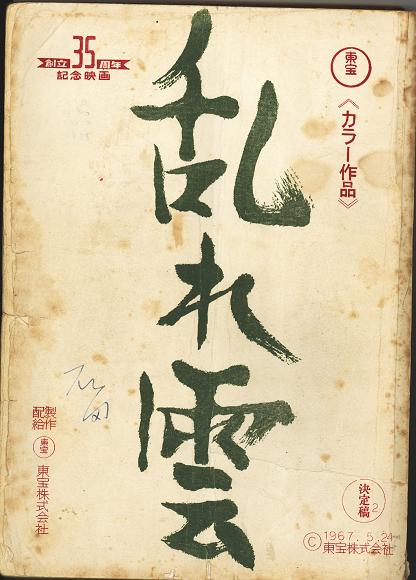 創立35周年
記念映画
東宝
《カラー作品》
乱れ雲
製作
配給
東宝
東宝株式会社
決定稿
2
© 1967.5.24
東宝株式会社